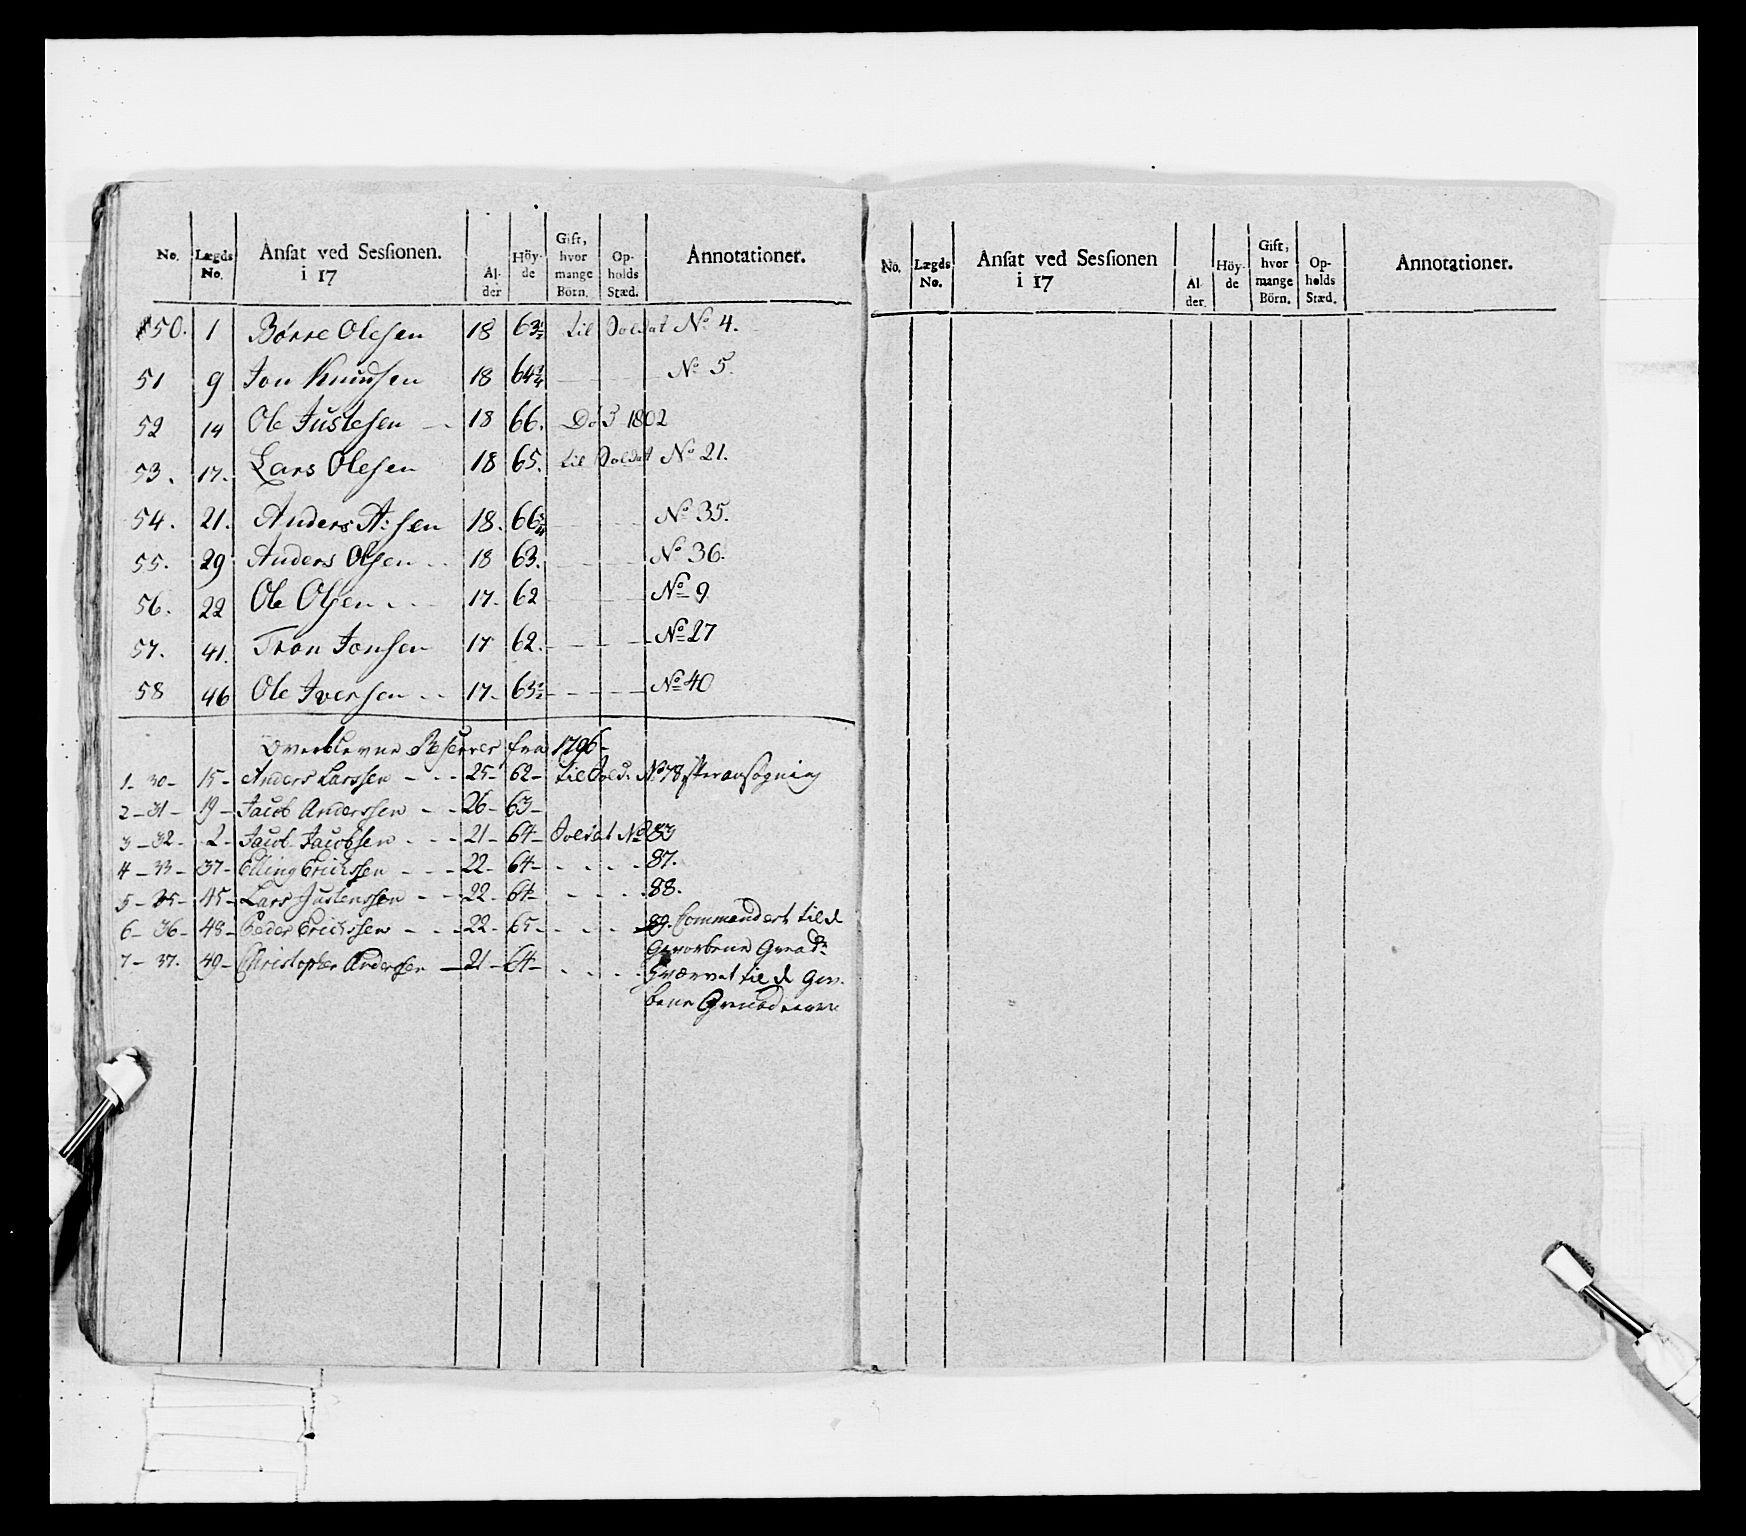 No. Lægds No. Ansat ved Sessionen. i 17 Al-der Höy-de Gift, hvor mange Börn. Op-holds Stæd. Annotationer.
150. 1 Børre Olesen 18 63½ til Soldat No 4.
51 9 Jon Knudsen 18 64¼ - - - No 5.
52 14 Ole Justesen - - 18 66. Død 1802
53. 17. Lars Olesen 18 65. til Soldat No 21.
54. 21. Anders A:sen 18. 66¾ - - - No 35.
55. 29 Anders Olsen - - 18 63. - - - No 36.
56. 22 Ole Olsen - - - 17. 62 - - - No 9
57. 41. Tron Jonsen 17 62. - - - No 27
58 46 Ole Iversen - - 17. 63½ - - - No 40
Overblevne Reserver fra 1796-
1- 30- 15- Anders Larssen - - - 25- 62- til Sold: No 78 efter ansøgning
2- 31- 19- Jacob Anderssen - - - 26- 63-
3- 32- 2- Jacob Jacobsen - - - 21- 64- Soldat No 83
4- 33- 37- Elling Erichssen - - - 22- 64- - - - 87.
5- 35- 45- Lars Justenssen - - 22- 64- - - - 88.
6- 36- 48- Peder Erichssen - - - 22- 65- - - - 89. Commandert til d
Gevorbene Grenad:
7- 37. 49- Christopher Anderssen - 21- 64- - - - hværvet til d Gev.
bene Grenaderere
No. Lægds No. Ansat ved Sessionen i 17 Al-der. Höy-de Gift, hvor mange Börn. Op-holds Stæd. Annotationer.